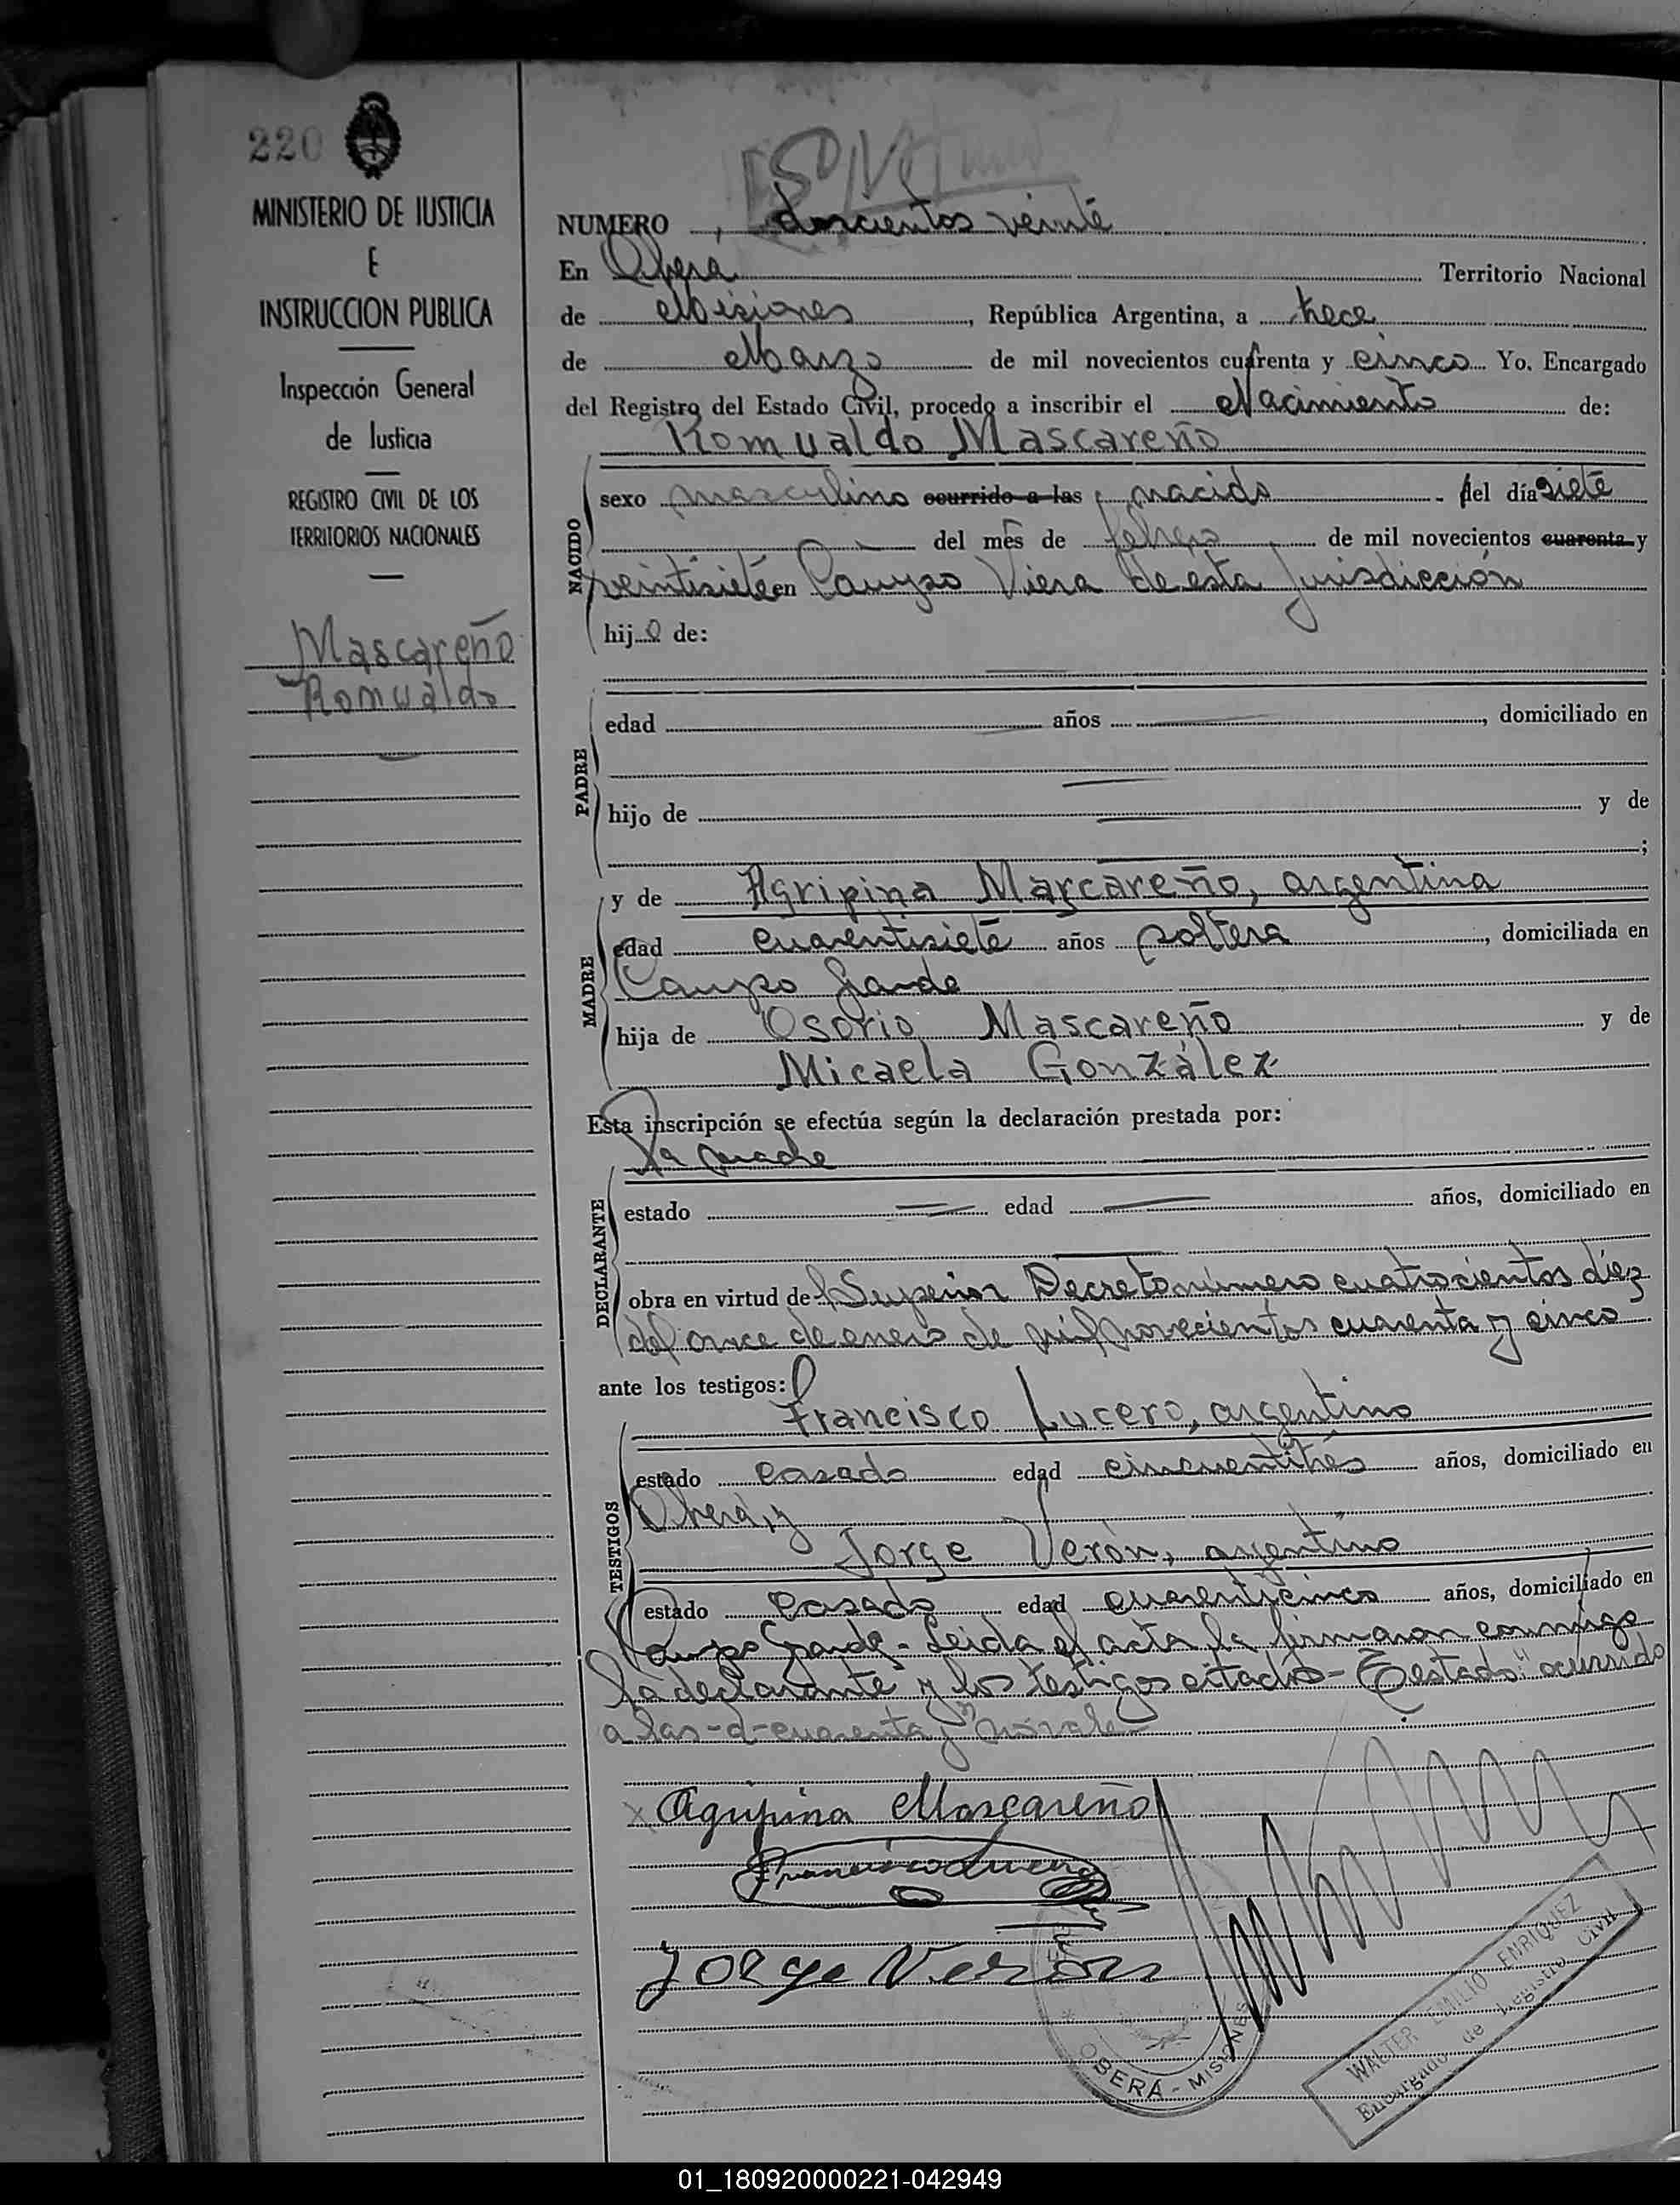 220
MINISTERIO DE JUSTICIA
E
INSTRUCCION PUBLICA
Inspección General
de Justicia
REGISTRO CIVIL DE LOS
TERRITORIOS NACIONALES
Mascareño
Romualdo
NUMERO doscientos veinte
En Oberá Territorio Nacional
de Misiones, República Argentina, a trece
de Marzo de mil novecientos cuarenta y cinco Yo, Encargado
del Registro del Estado Civil, procedo a inscribir el Nacimiento de:
Romualdo Mascareño
NACIDO
sexo masculino ocurrido a las nacido del día siete
del mes de febrero de mil novecientos cuarenta y
veintisiete en Campo Viera de esta jurisdicción
hijo de:
PADRE
edad años, domiciliado en
hijo de y de
;
MADRE
y de Agripina Mascareño, argentina
edad cuarentisiete años soltera, domiciliada en
Campo Grande
hija de Osorio Mascareño y de
Micaela González
Esta inscripción se efectúa según la declaración prestada por:
la madre
DECLARANTE
estado edad años, domiciliado en
obra en virtud del Superior Decreto número cuatrocientos diez
del once de enero de mil novecientos cuarenta y cinco
ante los testigos:
Francisco Lucero, argentino
TESTIGOS
estado casado edad cincuentitrés años, domiciliado en
Oberá, y
Jorge Verón, argentino
estado casado edad cuarenticinco años, domiciliado en
Campo Grande. Leida el acta la firmaron conmigo
la declarante y los testigos citados - Testado: "ocurrido
a las - d - cuarenta y" No vale -
Agripina Mascareño
Francisco Lucero
Jorge Veron
OBERÁ - MISIONES
WALTER EMILIO ENRIQUEZ
Encargado de Registro Civil
01_180920000221-042949